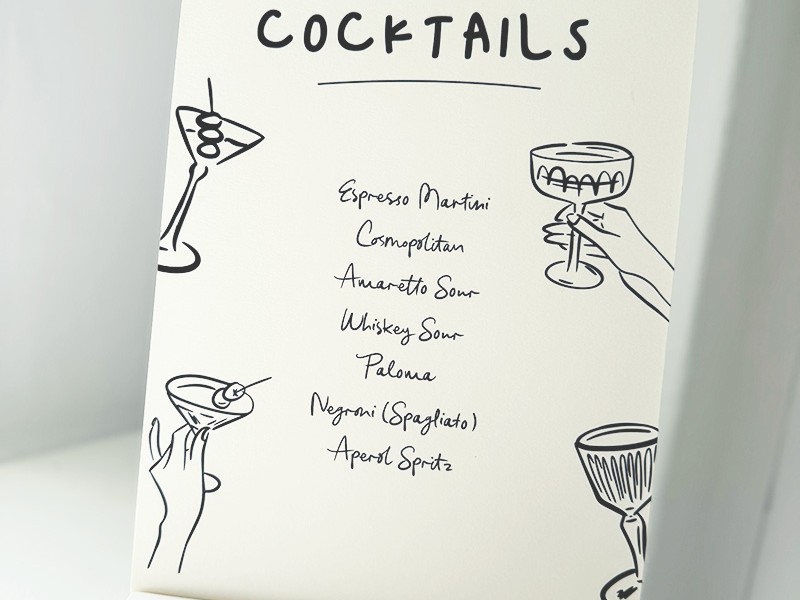 COCKTAILS
Espresso Martini
Cosmopolitan
Amaretto Sour
Whiskey Sour
Paloma
Negroni (Spagliato)
Aperol Spritz